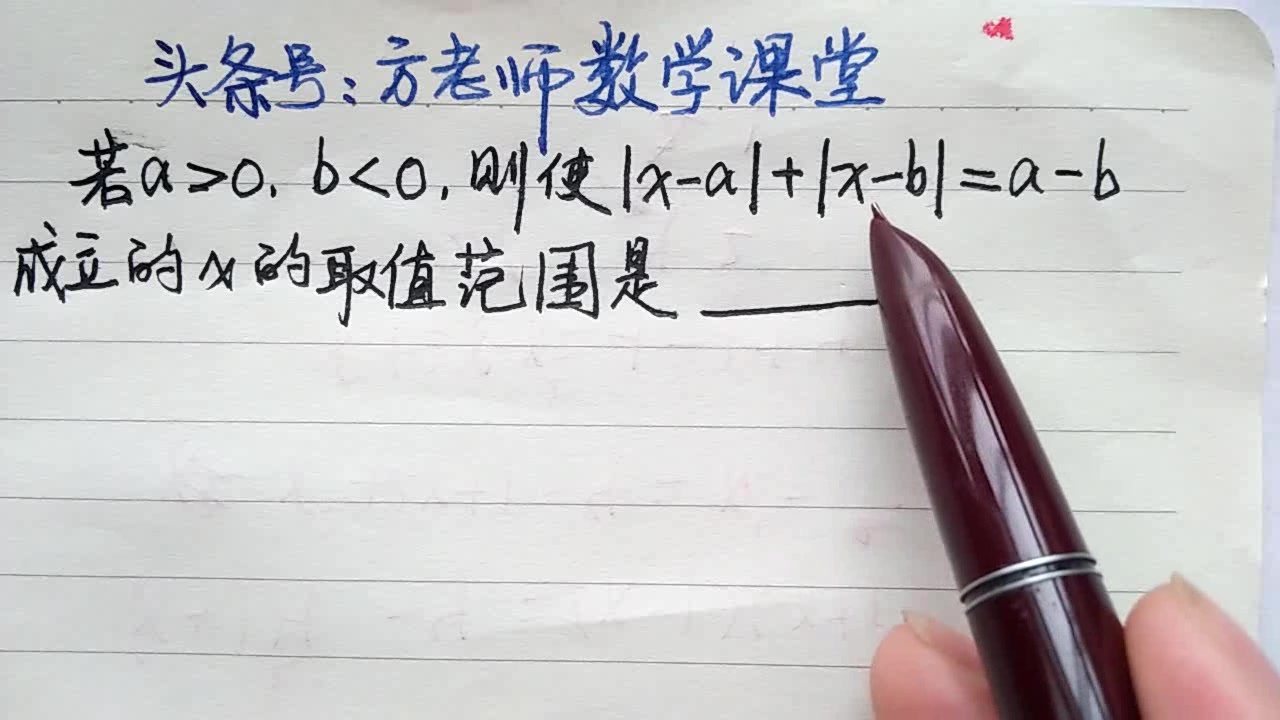 头条号:方老师数学课堂
若a>0,b<0,则使|x-a|+|x-b|=a-b
成立的x的取值范围是______